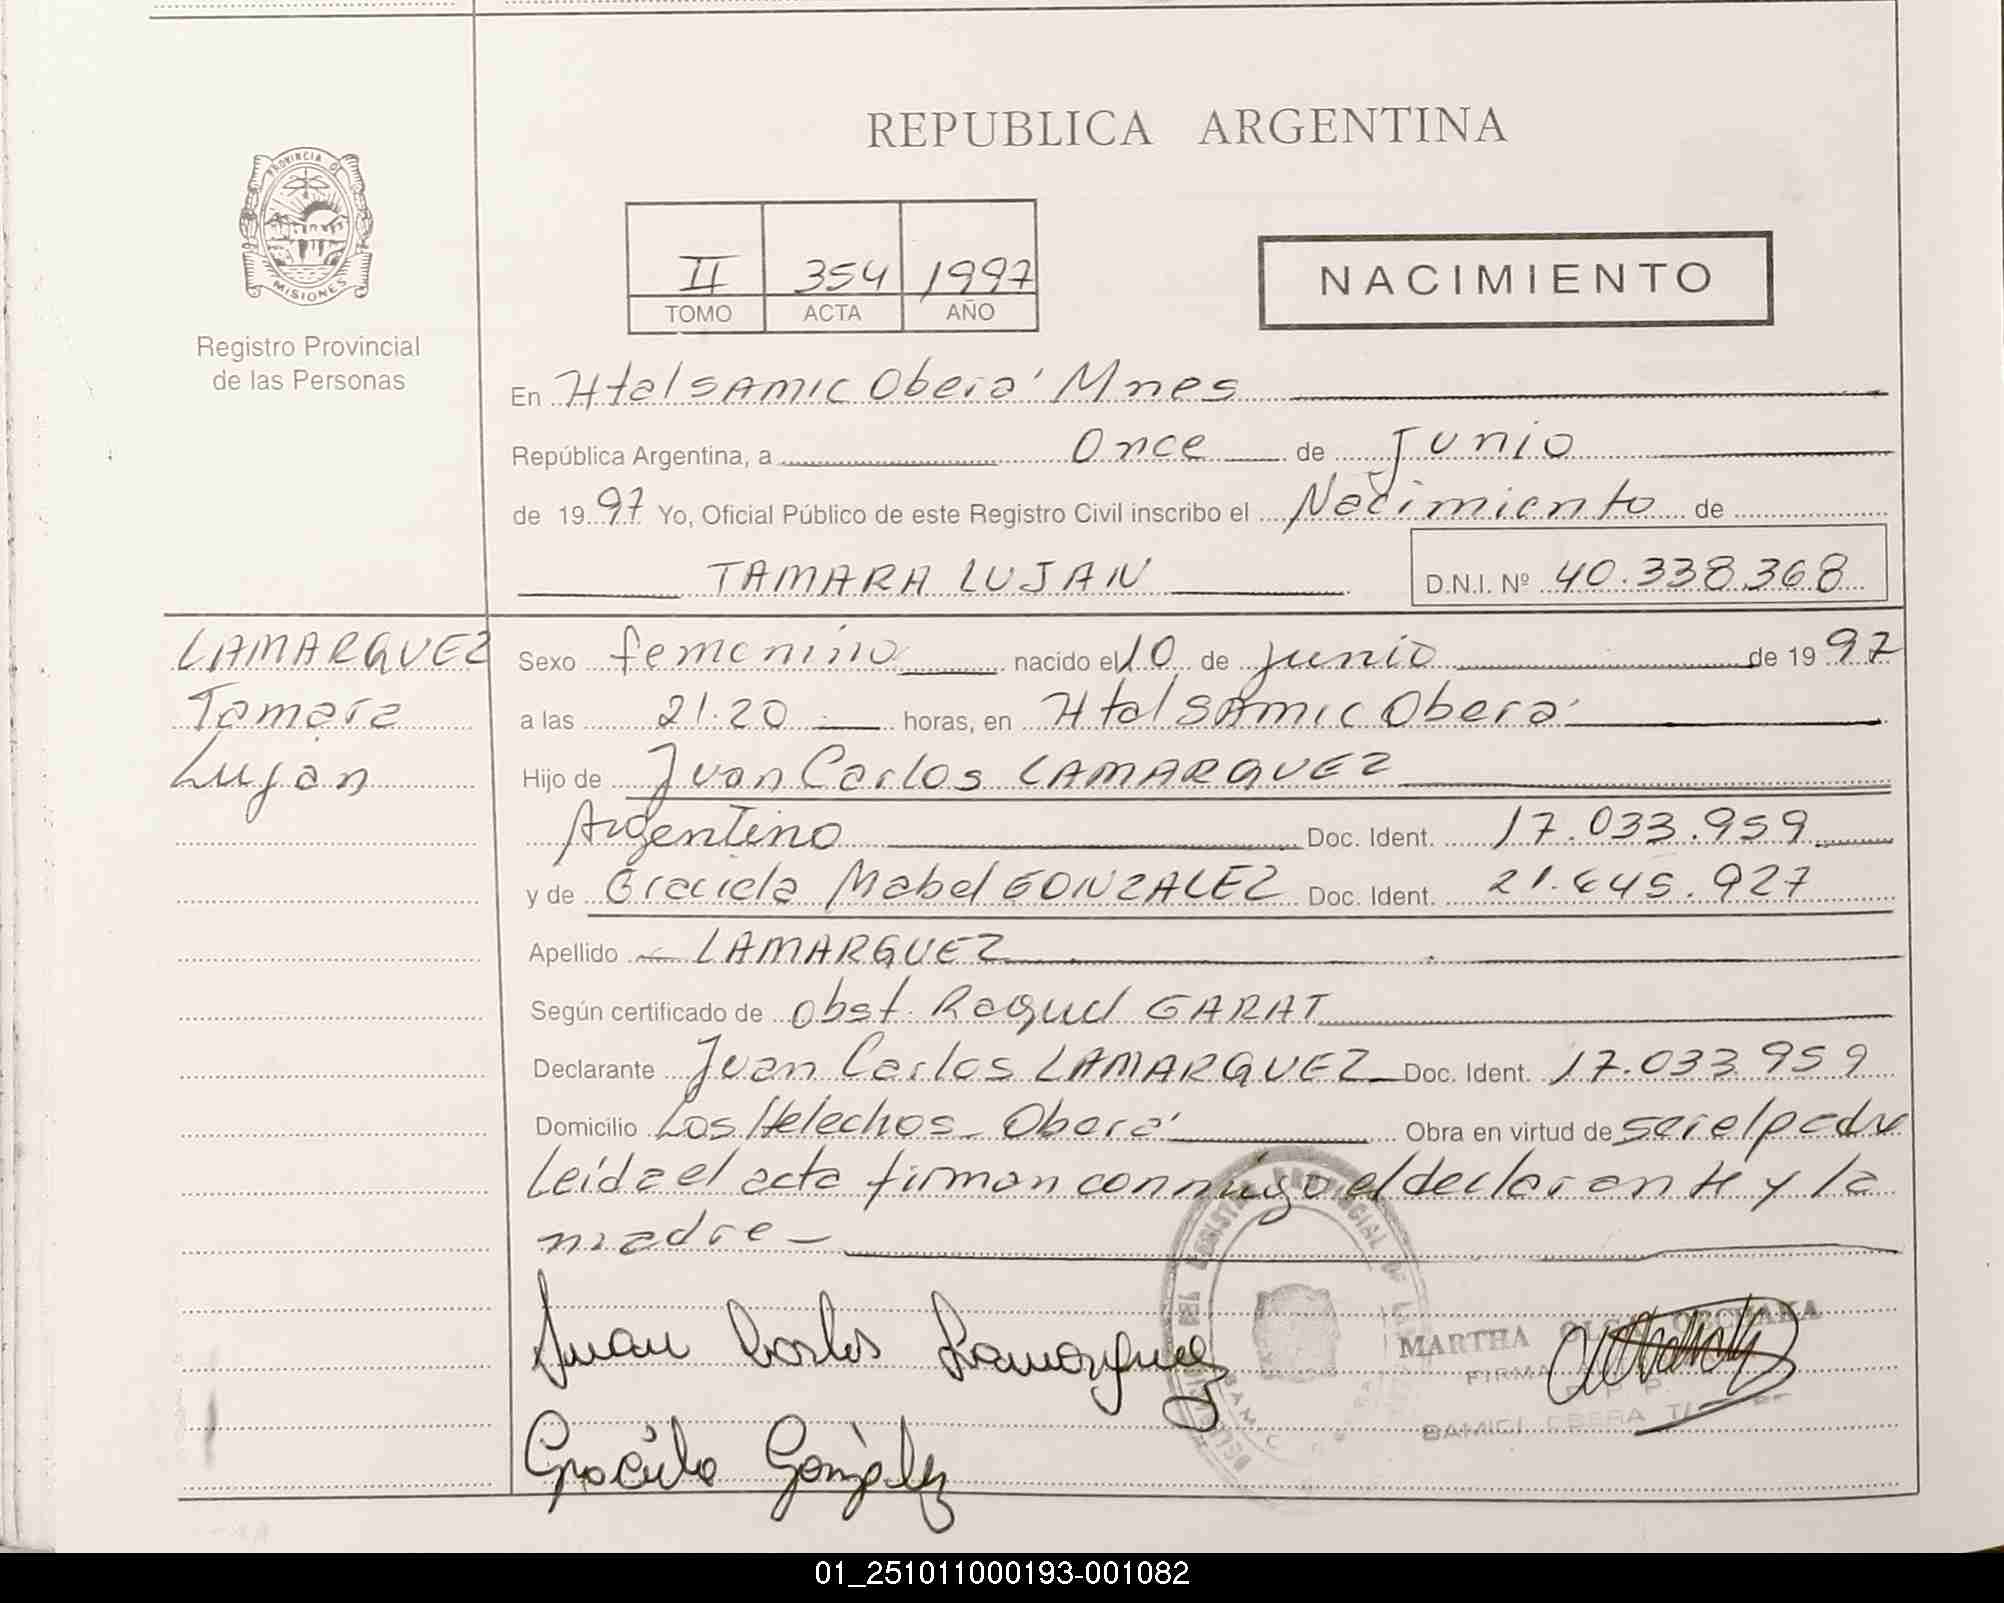 PROVINCIA DE
MISIONES
Registro Provincial
de las Personas
REPUBLICA ARGENTINA
II 354 1997
TOMO ACTA AÑO
NACIMIENTO
En Htal SAMIC Oberá Mnes
República Argentina, a Once de Junio
de 1997 Yo, Oficial Público de este Registro Civil inscribo el Nacimiento de
TAMARA LUJAN D.N.I. Nº 40.338.368
LAMARQUEZ
Tamara
Lujan
Sexo femenino nacido el 10 de junio de 1997
a las 21.20 horas, en Htal SAMIC Oberá
Hijo de Juan Carlos LAMARQUEZ
Argentino Doc. Ident. 17.033.959
y de Graciela Mabel GONZALEZ Doc. Ident. 21.645.927
Apellido LAMARQUEZ
Según certificado de Obst. Raquel GARAT
Declarante Juan Carlos LAMARQUEZ Doc. Ident. 17.033.959
Domicilio Los Helechos - Oberá Obra en virtud de ser el padre
Leída el acta firman conmigo el declarante y la
madre -
Juan Carlos Lamarquez
MARTHA OLGA
FIRMA
Graciela González
01_251011000193-001082